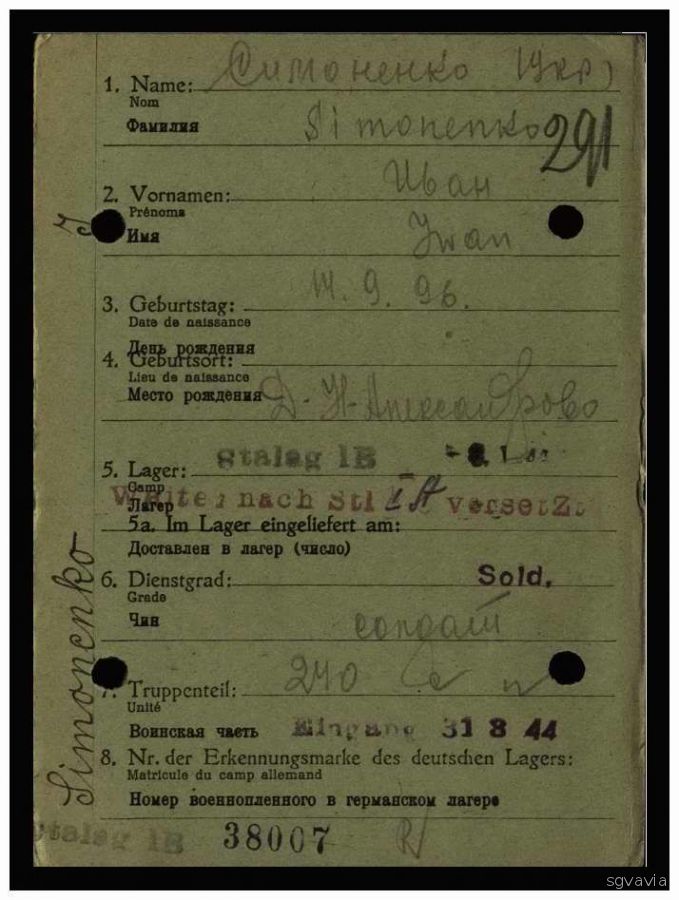 1. Name: Симоненко (Укр)
Nom
Фамилия Simonenko 291
2. Vornamen: Иван
Prénoms
Имя Iwan
3. Geburtstag: 14. 9. 96.
Date de naissance
День рождения
4. Geburtsort:
Lieu de naissance
Место рождения Д-Н-Александрово
5. Lager: Stalag IB
Camp
Weiter nach Stl IA versetzt
Лагер
5a. Im Lager eingeliefert am:
Доставлен в лагер (число)
6. Dienstgrad: Sold.
Grade
Чин солдат
7. Truppenteil: 240
Unité
Воинская часть Eingang 31 8 44
8. Nr. der Erkennungsmarke des deutschen Lagers:
Matricule du camp allemand
Номер военнопленного в германском лагере
Stalag IB 38007
Simonenko J
sgvavia